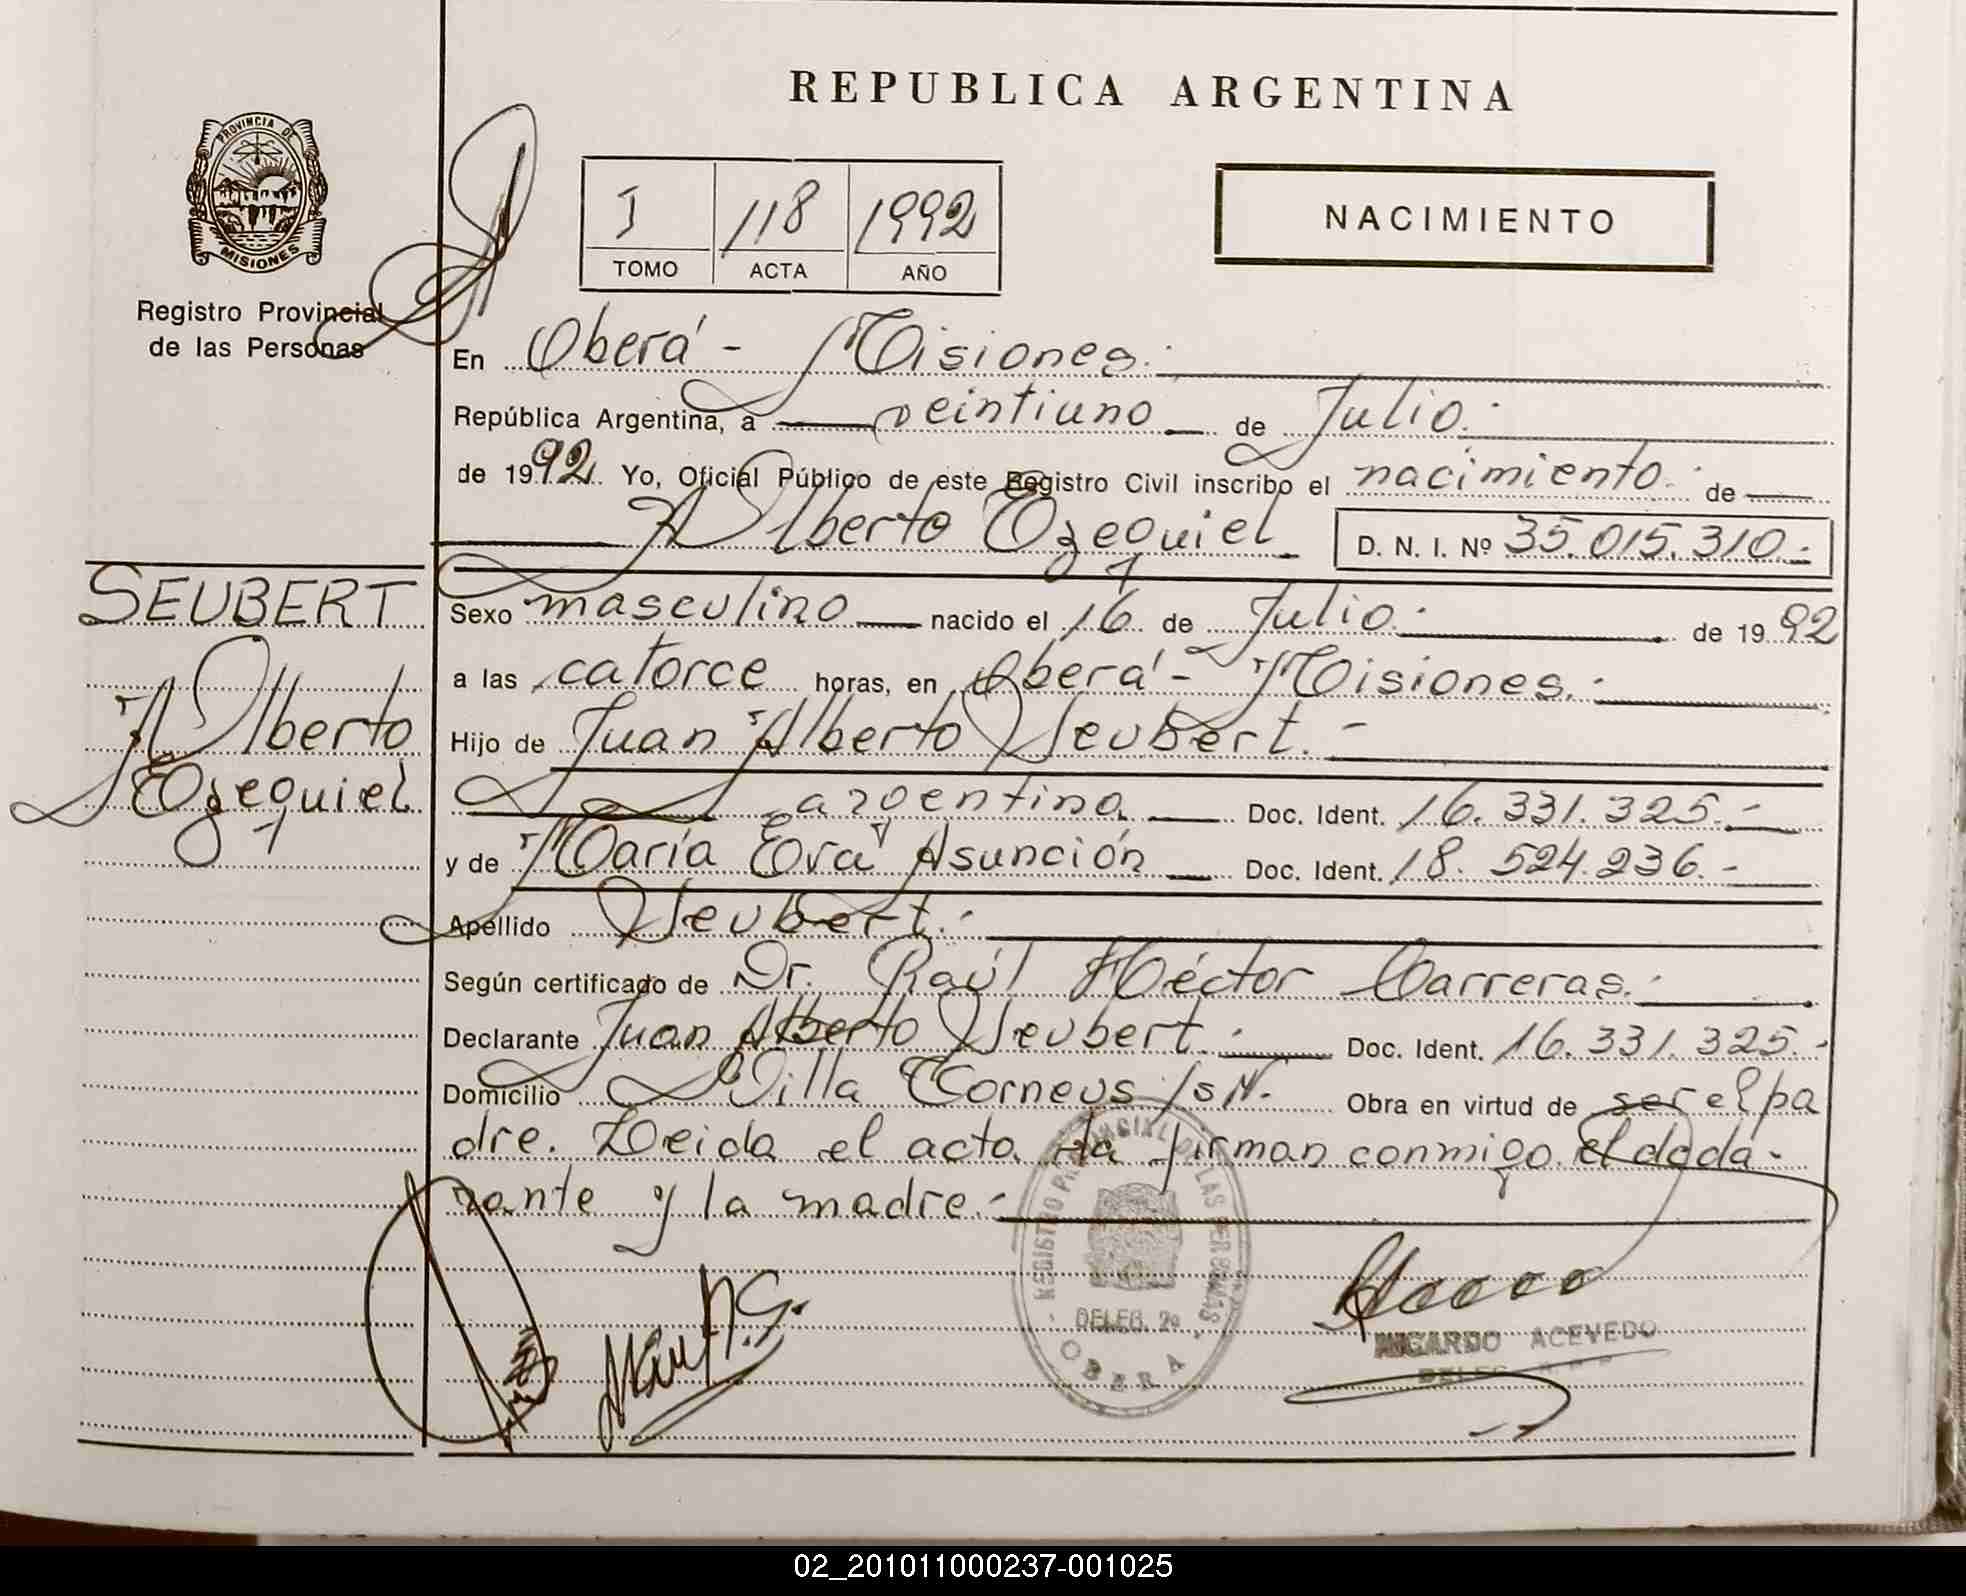 REPUBLICA ARGENTINA
PROVINCIA DE
MISIONES
Registro Provincial
de las Personas
I 118 1992
TOMO ACTA AÑO
NACIMIENTO
En Oberá - Misiones.-
República Argentina, a veintiuno de Julio.-
de 1992. Yo, Oficial Público de este Registro Civil inscribo el nacimiento.- de
Alberto Ezequiel D. N. I. Nº 35.015.310.-
SEUBERT
Alberto
Ezequiel
Sexo masculino nacido el 16 de Julio.- de 1992
a las catorce horas, en Oberá - Misiones.-
Hijo de Juan Alberto Seubert.-
argentino Doc. Ident. 16.331.325.-
y de María Eva Asunción Doc. Ident. 18.524.236.-
Apellido Seubert.-
Según certificado de Dr. Raúl Héctor Carreras.-
Declarante Juan Alberto Seubert.- Doc. Ident. 16.331.325.-
Domicilio Villa s/N. Obra en virtud de ser el pa
dre. Leida el acta la firman conmigo el
rante y la madre.-
REGISTRO PROVINCIAL DE LAS PERSONAS
DELEG. 2ª
OBERA
ACEVEDO
02_201011000237-001025